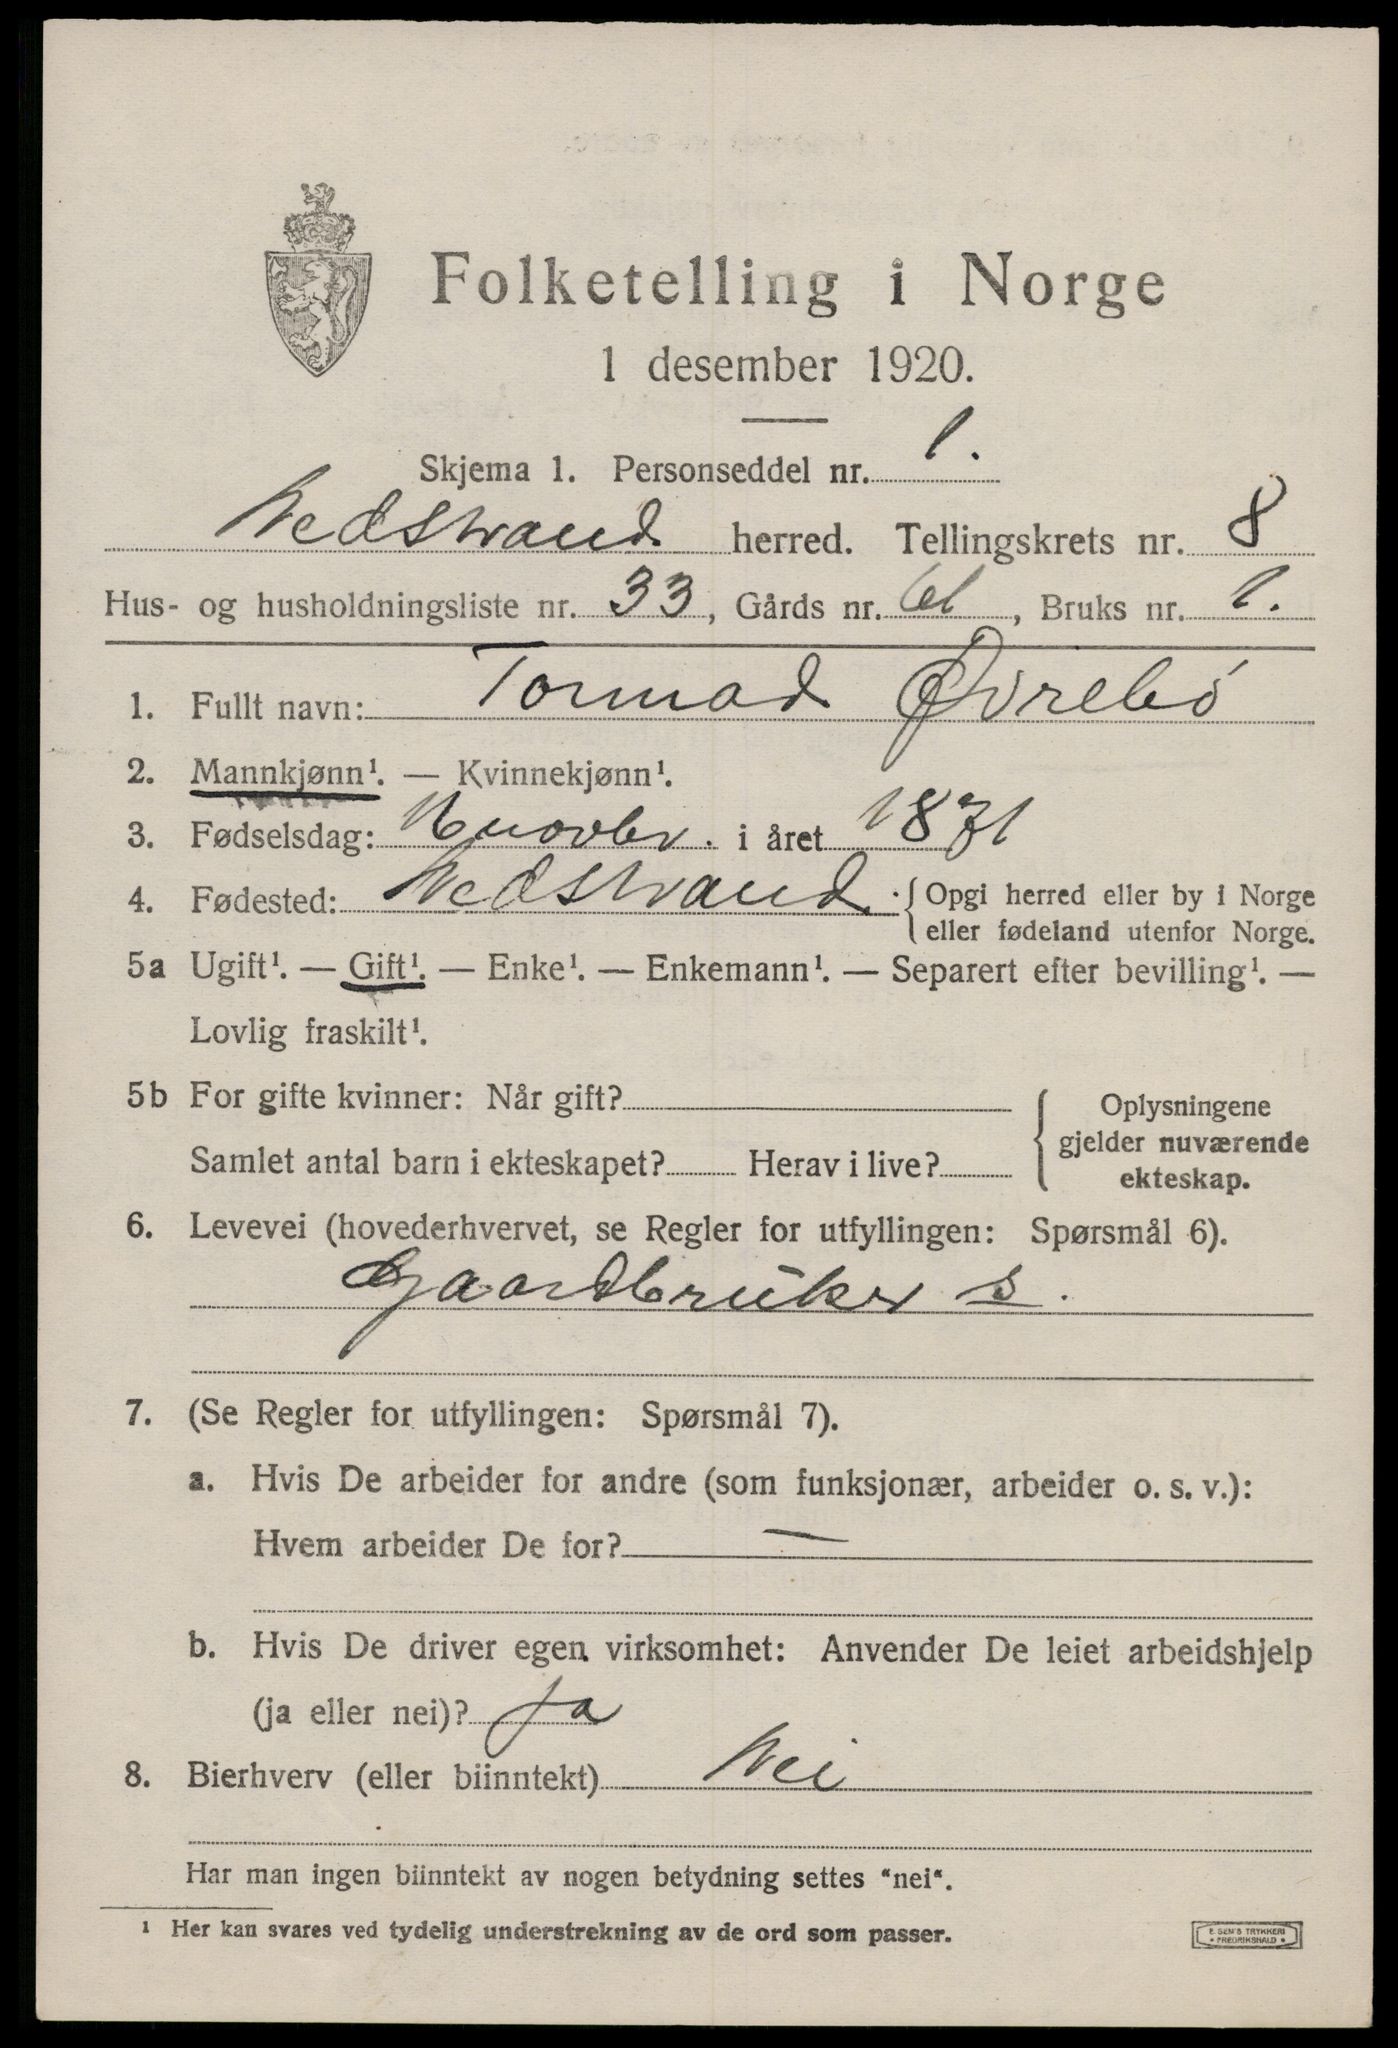 Folketelling i Norge
1 desember 1920.
Skjema 1. Personseddel nr. 1.
Nedstrand herred. Tellingskrets nr. 8
Hus- og husholdningsliste nr. 33, Gårds nr. 61, Bruks nr. 1.
1. Fullt navn: Tormod Øvrebö
2. Mannkjønn¹. — Kvinnekjønn¹.
3. Fødselsdag: 16 novbr. i året 1871
4. Fødested: Nedstrand. { Opgi herred eller by i Norge
eller fødeland utenfor Norge.
5a Ugift¹. — Gift¹. — Enke¹. — Enkemann¹. — Separert efter bevilling¹. —
Lovlig fraskilt¹.
5b For gifte kvinner: Når gift?
Samlet antal barn i ekteskapet? Herav i live?
{ Oplysningene
gjelder nuværende
ekteskap.
6. Levevei (hovederhvervet, se Regler for utfyllingen: Spørsmål 6).
Gaardbruker s.
7. (Se Regler for utfyllingen: Spørsmål 7).
a. Hvis De arbeider for andre (som funksjonær, arbeider o. s. v.):
Hvem arbeider De for? —
b. Hvis De driver egen virksomhet: Anvender De leiet arbeidshjelp
(ja eller nei)? Ja
8. Bierhverv (eller biinntekt) Nei
Har man ingen biinntekt av nogen betydning settes "nei".
¹ Her kan svares ved tydelig understrekning av de ord som passer.
TRYKKERI
FREDRIKSHALD